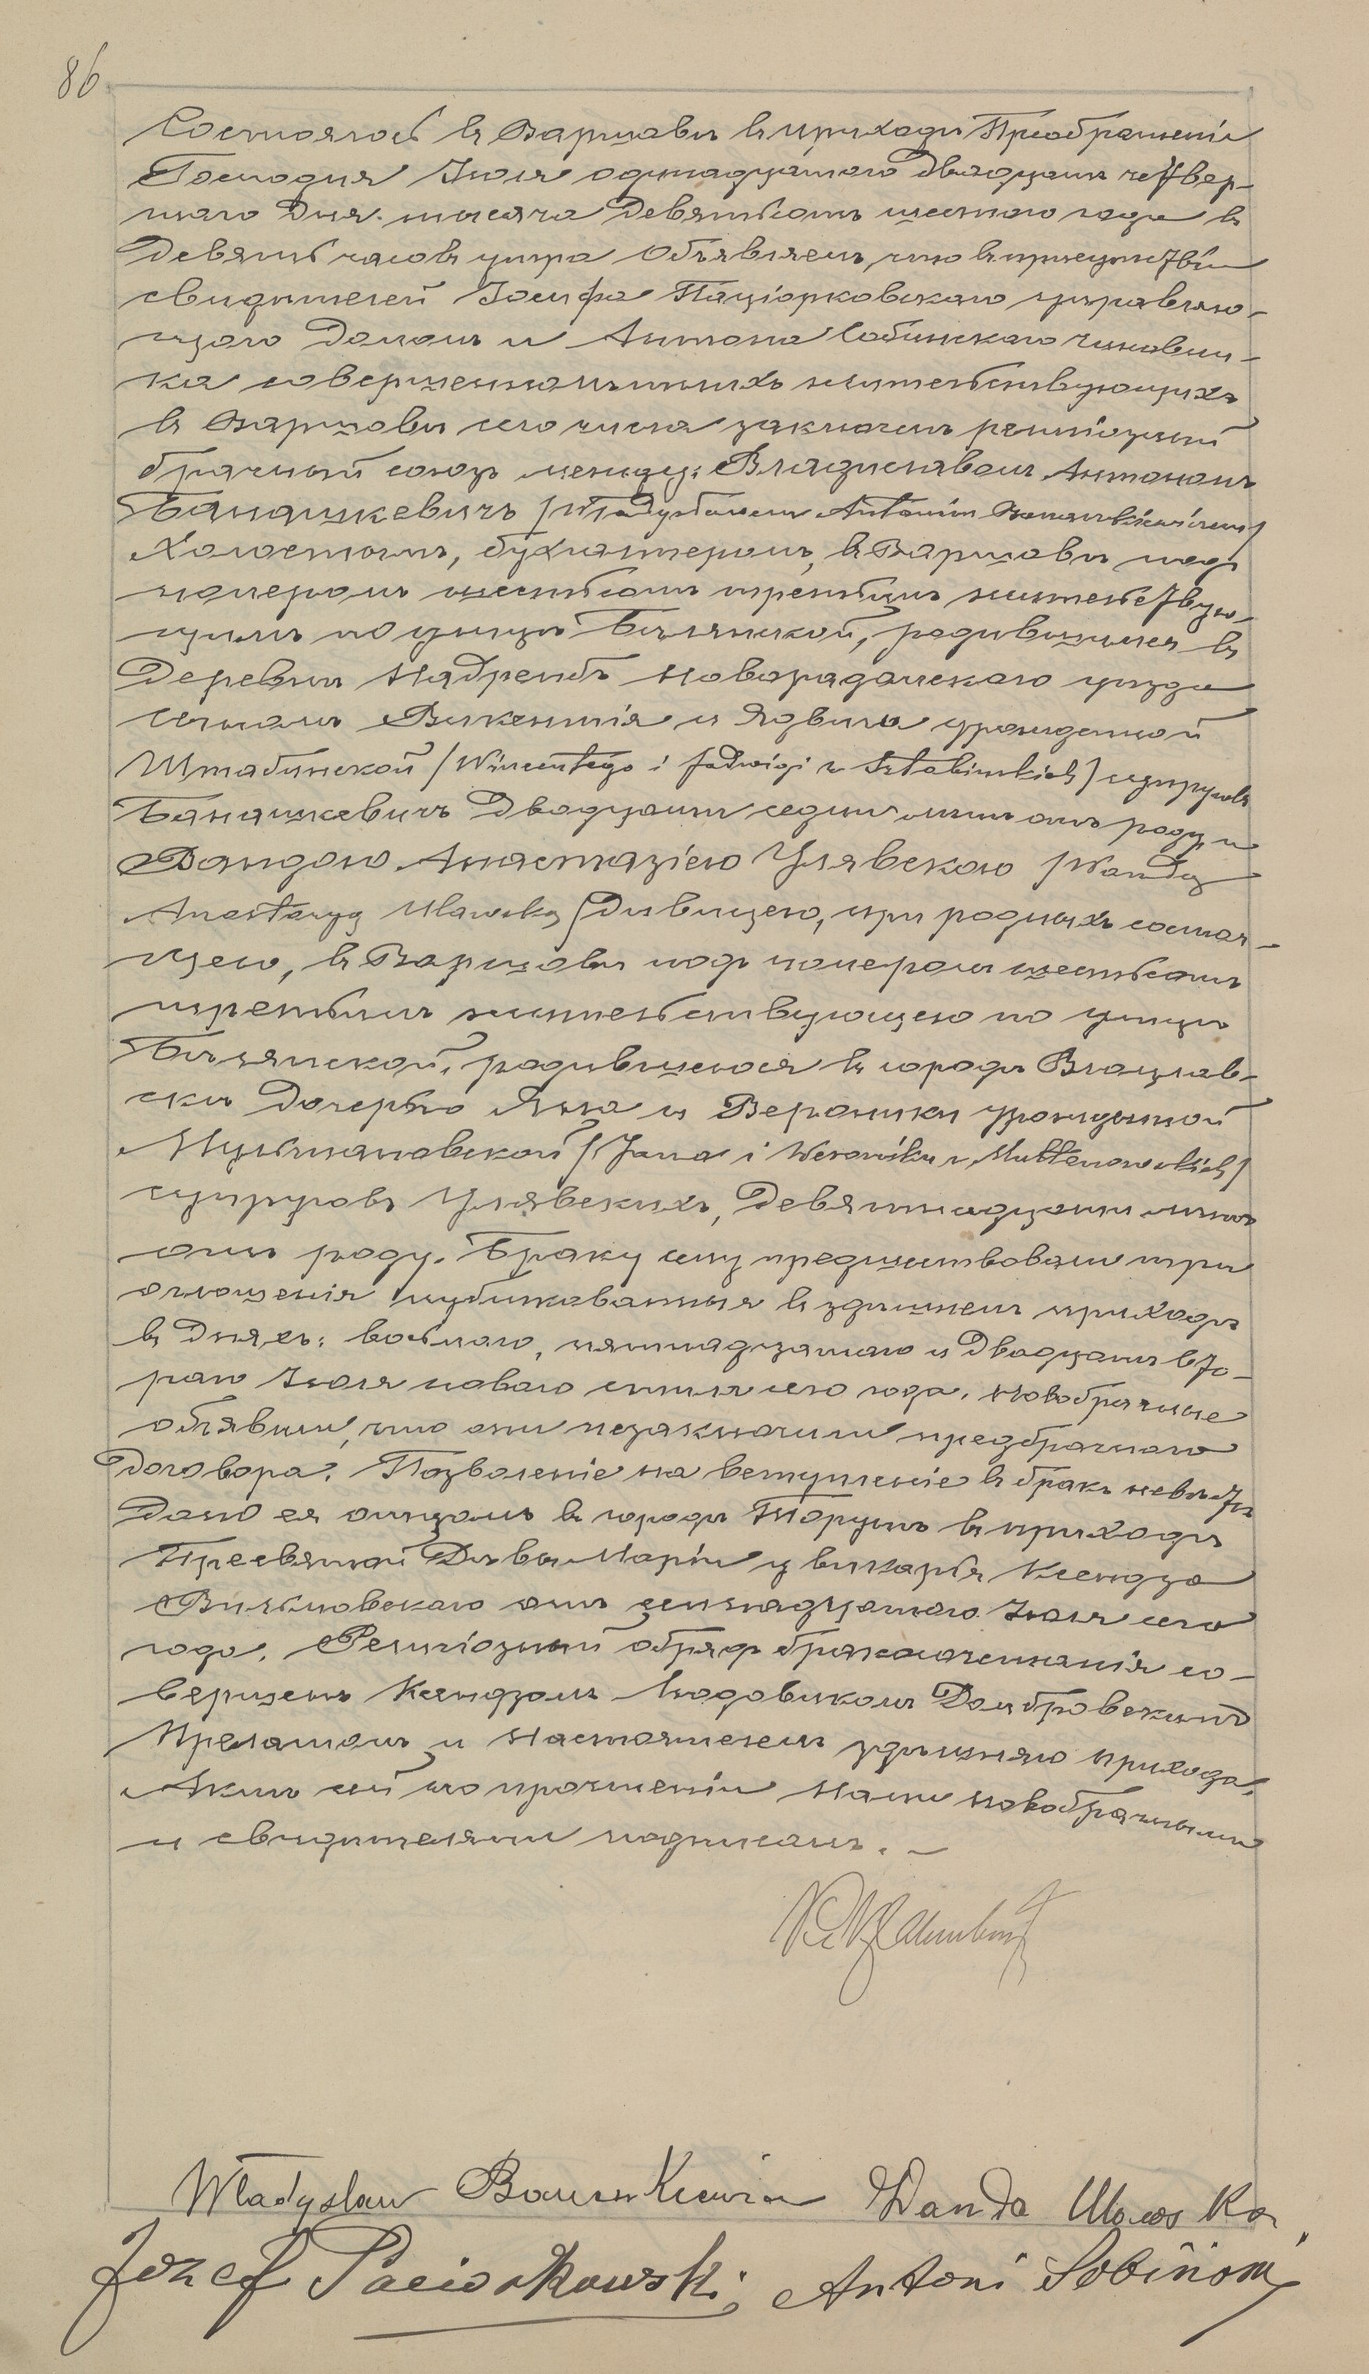 86
Состоялось въ Варшавѣ въ приходѣ Преображенія
Господня Іюля одинадцатаго двадцать четвер-
таго дня тысяча девятьсотъ шестаго года въ
девять часовъ утра Объявляемъ, что въ присутствіи
свидѣтелей Іосифа Паціорковскаго управляю-
щаго домомъ и Антона Собинскаго чиновни-
ка совершеннолѣтнихъ жительствующихъ
въ Варшавѣ сего числа заключенъ религіозный
брачный союзъ между: Владиславомъ Антономъ
Банашкевичъ /Władysławem Antonim Banaszkiewiczem/
Холостымъ, бухгалтеромъ, въ Варшавѣ подъ
номеромъ шестьсотъ третьимъ жительствую-
щимъ по улицѣ Бѣлянской, родившимся въ
деревнѣ Надрембѣ Новорадомскаго уѣзда
сыномъ Викентія и Ядвиги урожденной
Штабинской /Wincentego i Jadwigi z Sztabińskich/ супруговъ
Банашкевичъ двадцати седми лѣтъ отъ роду и
Вандою Анастазіею Улявскою /Wandą
Anastazyą Ulawską/ дѣвицею, при родныхъ состоя-
щею, въ Варшавѣ подъ номеромъ шестьсотъ
третьимъ жительствующею по улицѣ
Бѣлянской, родившеюся въ городѣ Влоцлав-
скѣ дочерью Яна и Вероники урожденной
Мультановской /Jana i Weroniki z Multanowskich/
супруговъ Улявскихъ, девятнадцати лѣтъ
отъ роду. Браку сему предшествовали три
оглашенія публикованныя въ здѣшнемъ приходѣ
въ дняхъ: восьмаго, пятнадцатаго и двадцать вто-
раго Іюля новаго стиля сего года. Новобрачные
объявили, что они незаключили предбрачнаго
договора. Позволеніе на вступленіе въ бракъ невѣстѣ
дано ея отцомъ въ городѣ Торунѣ въ приходѣ
Пресвятой Дѣвы Маріи у викарія Ксендза
отъ семнадцатаго Іюля сего
года. Религіозный обрядъ бракосочетанія со-
вершенъ Ксендзомъ Людовикомъ Домбровскимъ
Прелатомъ и Настоятелемъ здѣшняго прихода.
Актъ сей по прочтеніи Нами новобрачными
и свидѣтелями подписанъ.
Władysław Banaszkiewicz Wanda Ulawska
Józef Paciorkowski; Antoni Sobiński